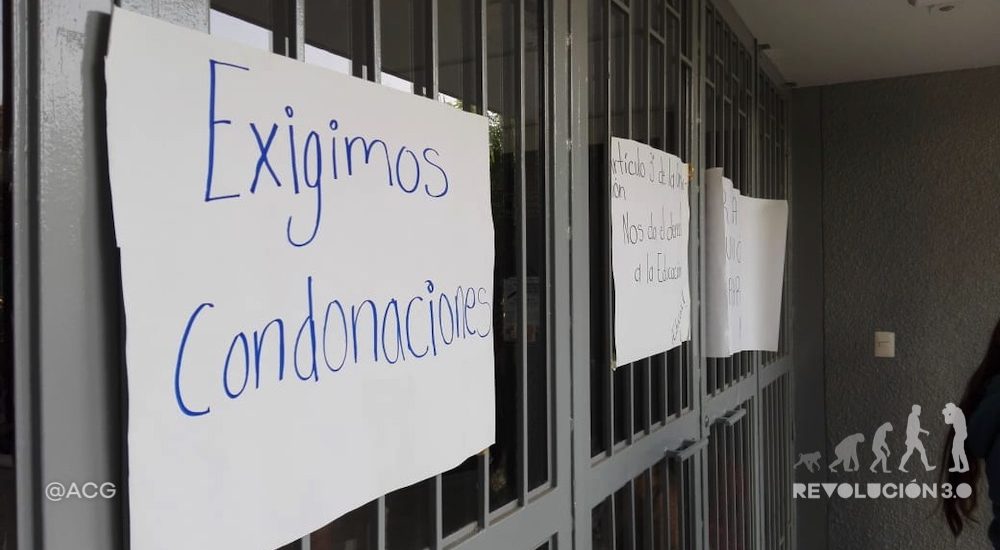 Exigimos
Condonaciones
Artículo 3° de la
Nos da el
a la Educación
@ACG
REVOLUCIÓN 3.0